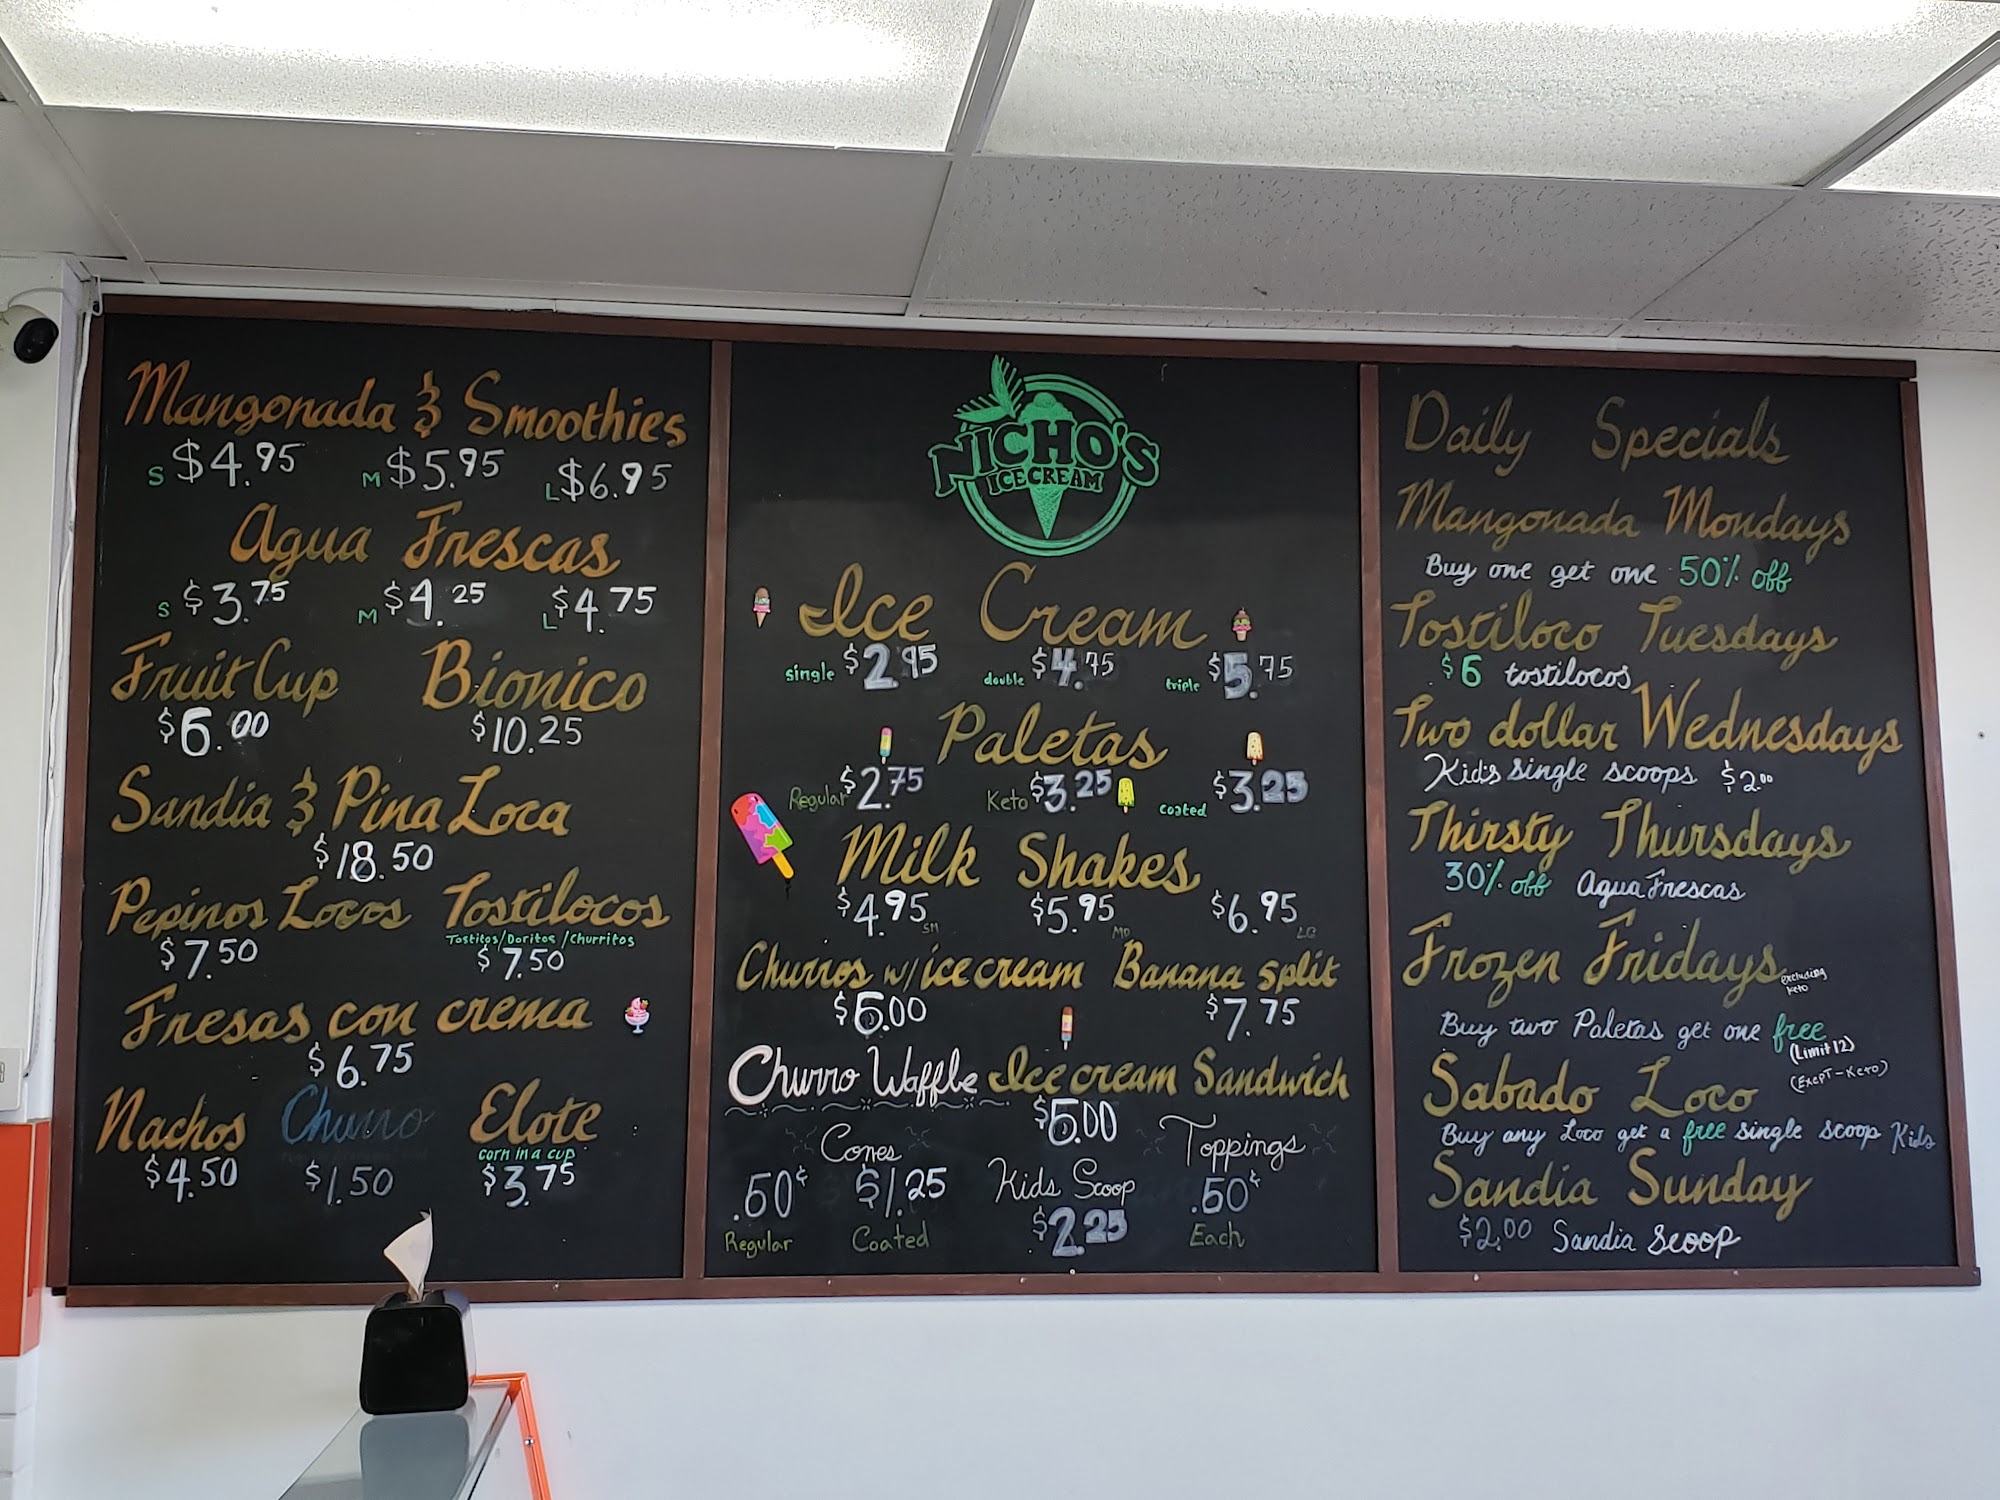 Mangonada & Smoothies
S $4.95 M $5.95 L $6.95
Agua Frescas
S $3.75 M $4.25 L $4.75
Fruit Cup Bionico
$6.00 $10.25
Sandia & Pina Loca
$18.50
Pepinos Locos Tostilocos
Tostitos/Doritos/Churritos
$7.50 $7.50
Fresas con crema
$6.75
Nachos Churro Elote
corn in a cup
$4.50 $1.50 $3.75
NICHO'S
ICE CREAM
Ice Cream
single $2.95 double $4.75 triple $5.75
Paletas
Regular $2.75 Keto $3.25 coated $3.25
Milk Shakes
$4.95 SM $5.95 MD $6.95 LG
Churros w/ ice cream Banana split
$6.00 $7.75
Churro Waffle Ice cream Sandwich
$6.00
Cones Toppings
.60¢ $1.25 Kids Scoop .60¢
Regular Coated $2.25 Each
Daily Specials
Mangonada Mondays
Buy one get one 50% off
Tostiloco Tuesdays
$6 tostilocos
Two dollar Wednesdays
Kid's single scoops $2.00
Thirsty Thursdays
30% off Agua Frescas
Frozen Fridays excluding
keto
Buy two Paletas get one free
(Limit 12)
(ExepT-Keto)
Sabado Loco
Buy any Loco get a free single scoop Kids
Sandia Sunday
$2.00 Sandia Scoop